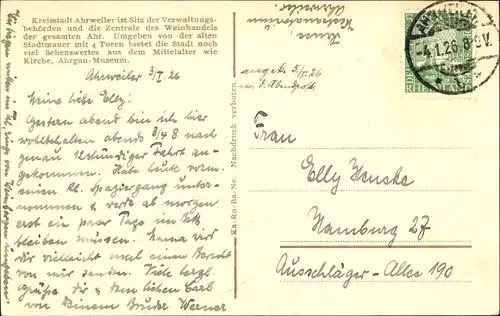 Kreisstadt Ahrweiler ist Sitz der Verwaltungs-
behörden und die Zentrale des Weinhandels
der gesamten Ahr. Umgeben von der alten
Stadtmauer mit 4 Toren bietet die Stadt noch
viel Sehenswertes aus dem Mittelalter wie
Kirche, Ahrgau-Museum.
Ahrweiler 3/I. 26
Meine liebe Elly:
Gestern abend bin ich hier
wohlbehalten abends 3/4 8 nach
genau 12stündiger Fahrt an-
gekommen. Habe heute vorm.
einen kl. Spaziergang unter-
nommen & werde ab morgen
erst ein paar Tage im Bett
bleiben müssen. Mama wird
dir vielleicht mal einen Bericht
von mir senden. Viele herzl.
Grüße dir & dem lieben Carl
von Deinem Bruder Werner
Ka-Ro-Ba-Ne. Nachdruck verboten.
Ahrweiler.
angek. 5/I. 26
m. d. Abendpost.
AHRWEILER
-4.1.26. 8-9V.
Frau
Elly Henske
Hamburg 27
Ausschläger-Allee 190